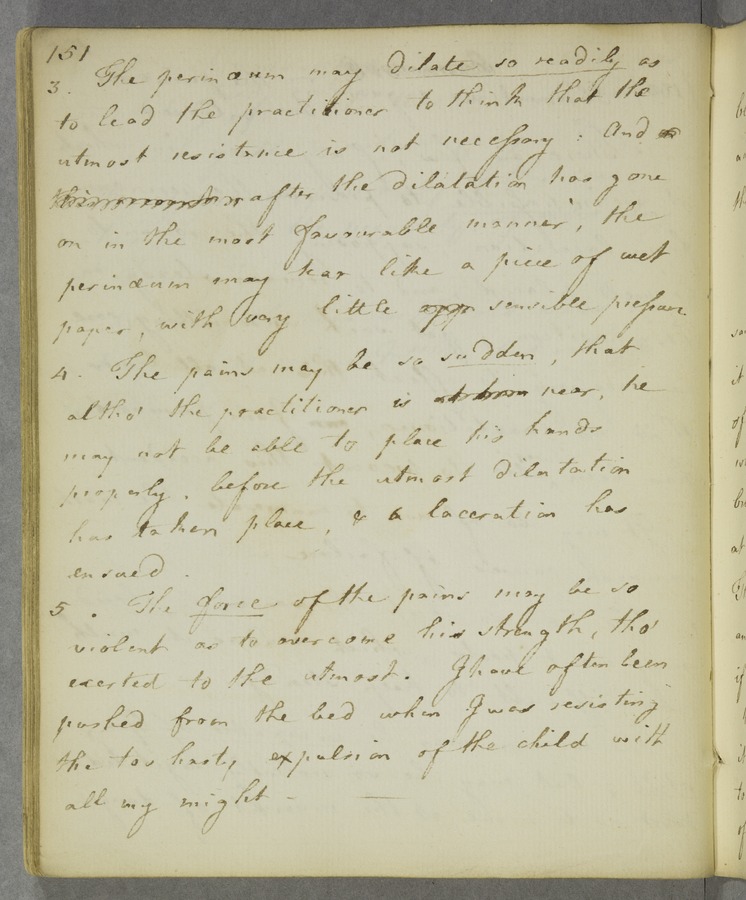 151
3. The perinæum may dilate so readily as
to lead the practitioner to think that the
utmost resistance is not necessary: And
after the dilatation has gone
on in the most favourable manner, the
perinæum may tear like a piece of wet
paper, with very little app sensible pressure.
4. The pains may be so sudden, that
altho' the practitioner is near, he
may not be able to place his hands
properly, before the utmost dilatation
has taken place, & a laceration has
ensued.
5. The force of the pains may be so
violent as to overcome his strength, tho'
exerted to the utmost. I have often been
pushed from the bed when I was resisting
the too hasty expulsion of the child with
all my might —